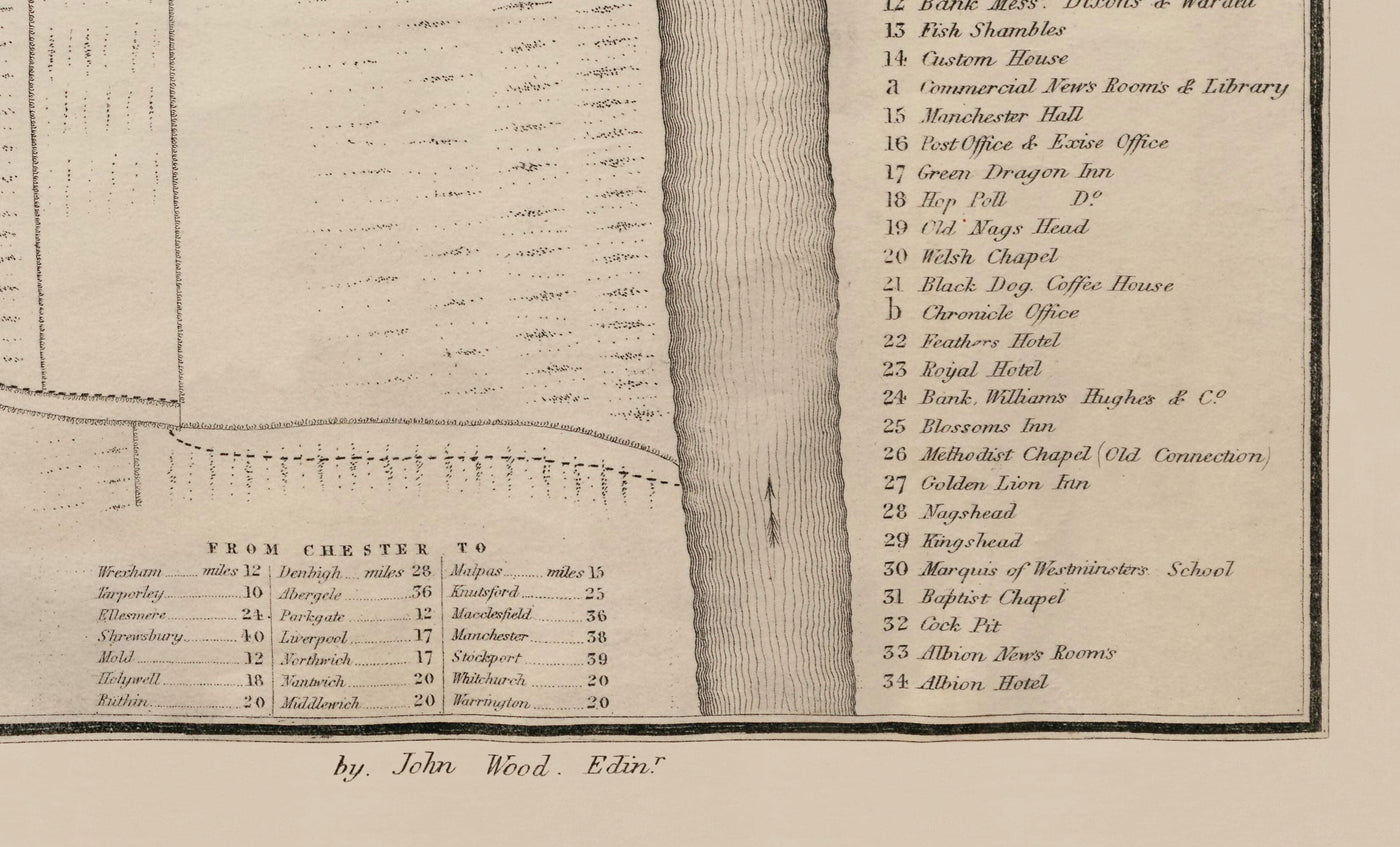 12 Bank Mess. Dixons & Wardell
13 Fish Shambles
14 Custom House
a Commercial News Rooms & Library
15 Manchester Hall
16 Post Office & Exise Office
17 Green Dragon Inn
18 Hop Poll Do
19 Old Nags Head
20 Welsh Chapel
21 Black Dog. Coffee House
b Chronicle Office
22 Feathers Hotel
23 Royal Hotel
24 Bank, Williams Hughes & Co
25 Blossoms Inn
26 Methodist Chapel (Old Connection)
27 Golden Lion Inn
28 Nagshead
29 Kingshead
30 Marquis of Westminsters School
31 Baptist Chapel
32 Cock Pit
33 Albion News Rooms
34 Albion Hotel
FROM CHESTER TO
Wrexham miles 12 Denbigh miles 28 Malpas miles 15
Tarporley 10 Abergele 36 Knutsford 25
Ellesmere 24 Parkgate 12 Macclesfield 36
Shrewsbury 40 Liverpool 17 Manchester 38
Mold 12 Northwich 17 Stockport 39
Holywell 18 Nantwich 20 Whitchurch 20
Ruthin 20 Middlewich 20 Warrington 20
by. John Wood. Edinr